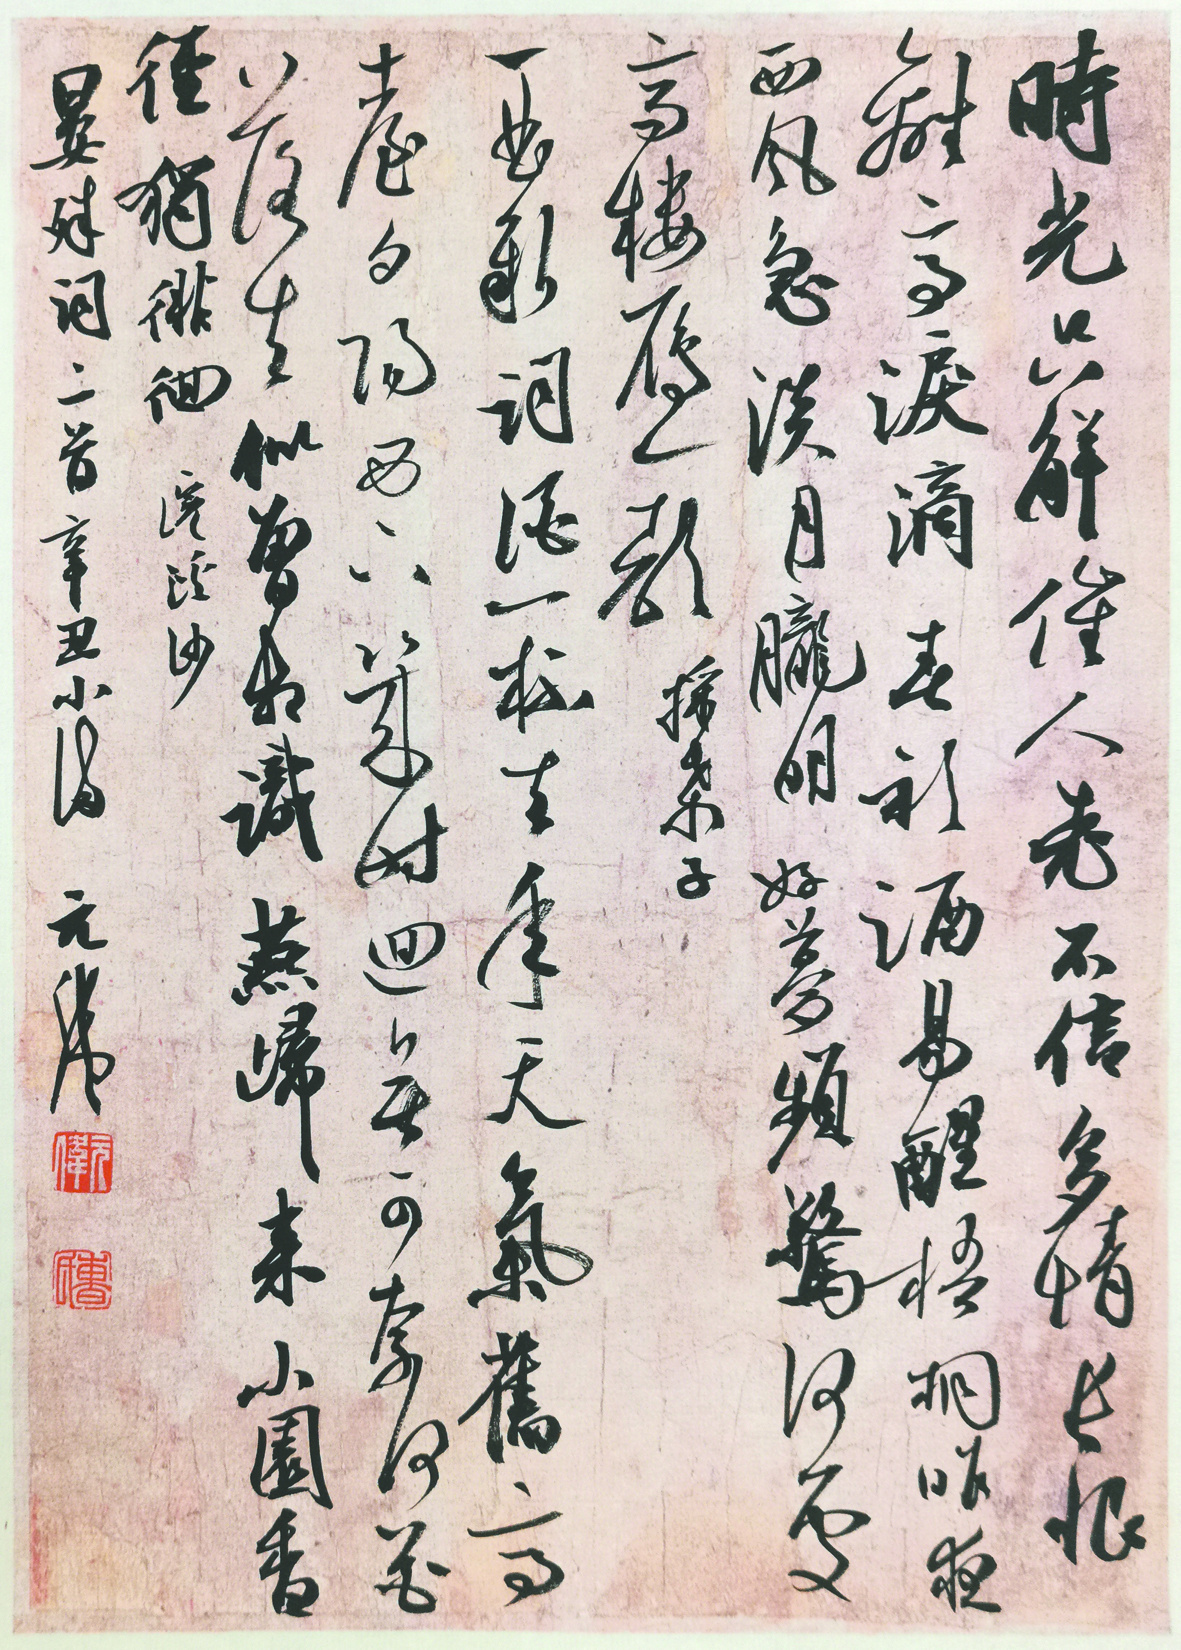 時光只解催人老不信多情長恨
離亭淚滴春衫酒易醒梧桐昨夜
西風急淡月朧明好夢頻驚何處
高樓雁一聲 採桑子
一曲新詞酒一杯去年天氣舊亭
臺夕陽西下幾時迴無可奈何花
落去似曾相識燕歸來小園香
徑獨徘徊 浣溪沙
晏殊詞二首辛丑小滿 元偉
元偉